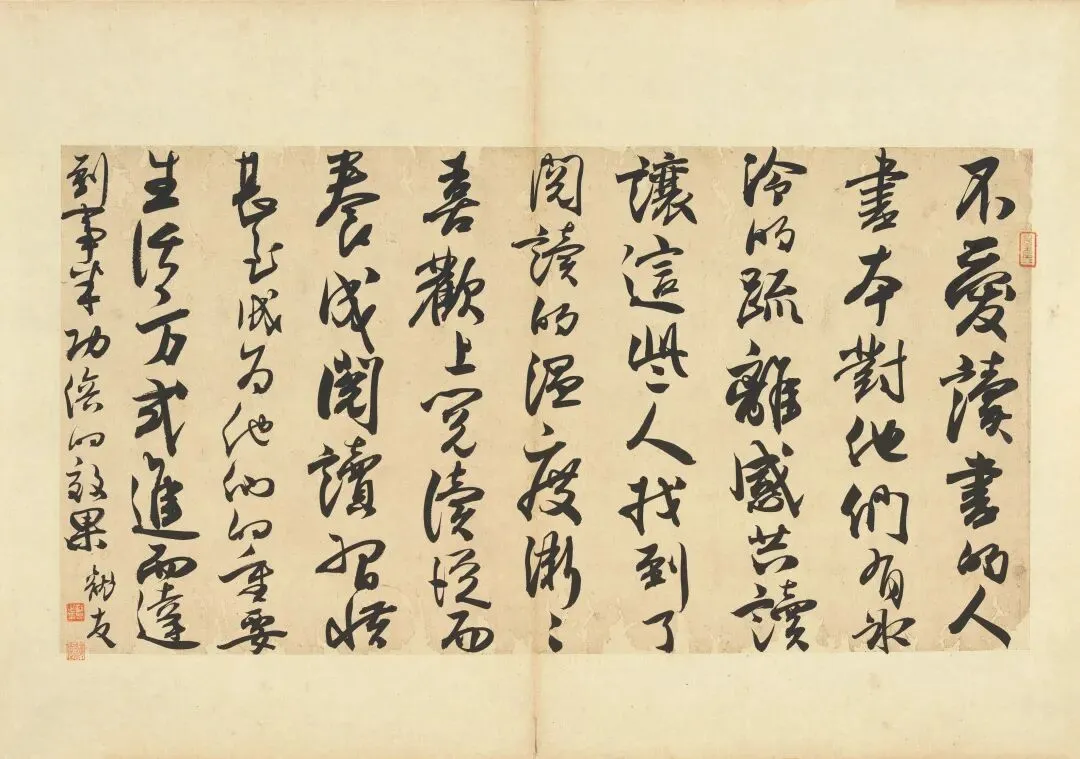 不愛讀書的人
書本對他們有冰
冷的疏離感共讀
讓這些人找到了
閱讀的溫度漸〻
喜歡上閱讀從而
養成閱讀習慣
甚至成為他們的重要
生活方式進而達
到事半功倍的效果 友